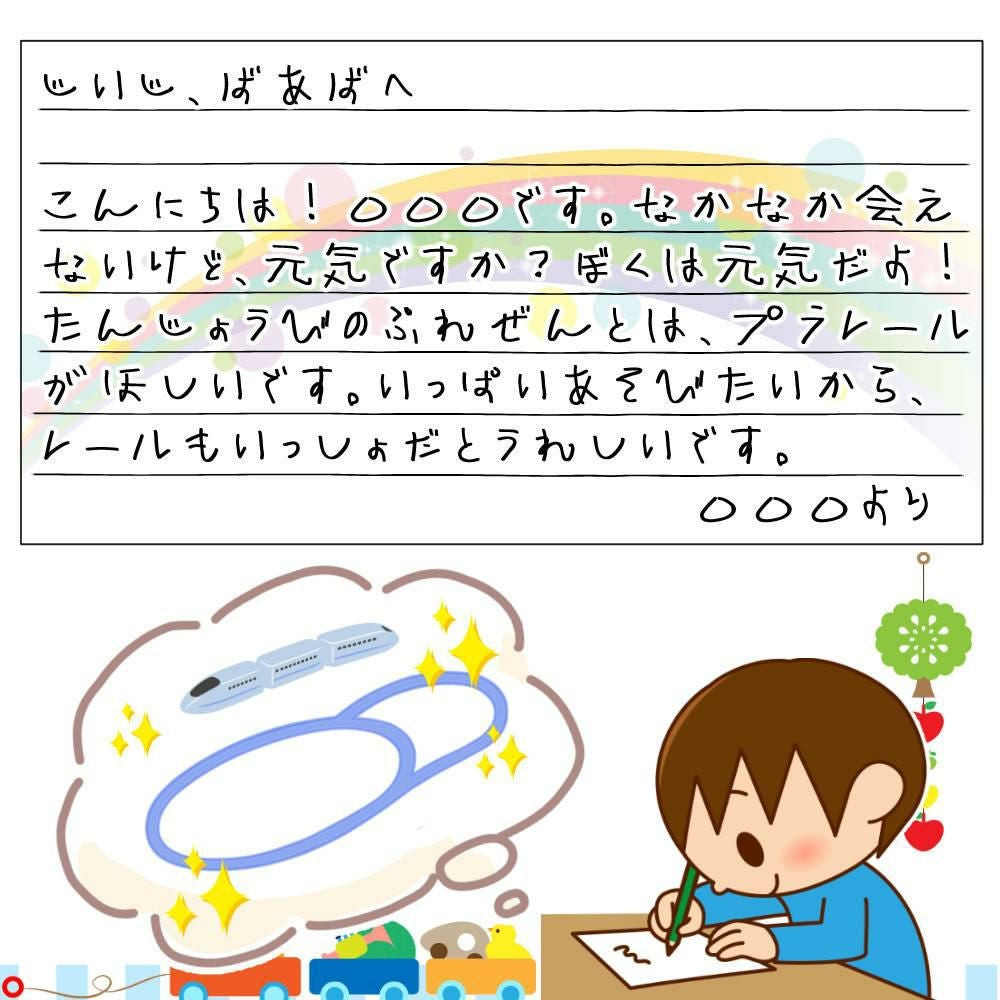 じいじ、ばあばへ
こんにちは！〇〇〇です。なかなか会え
ないけど、元気ですか？ぼくは元気だよ！
たんじょうびのぷれぜんとは、プラレール
がほしいです。いっぱいあそびたいから、
レールもいっしょだとうれしいです。
〇〇〇より